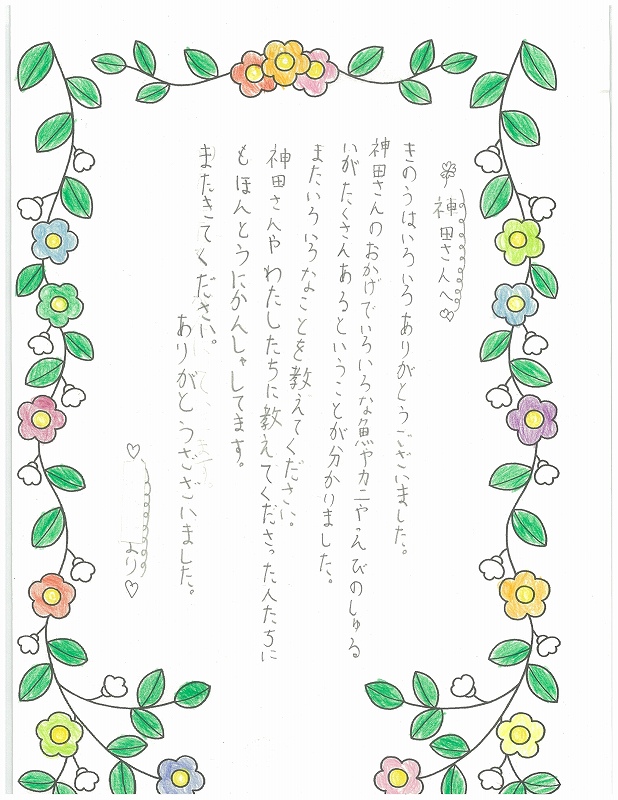 神田さんへ
きのうはいろいろありがとうございました。
神田さんのおかげでいろいろな魚やカニやえびのしゅる
いがたくさんあるということが分かりました。
またいろいろなことを教えてください。
神田さんやわたしたちに教えてくださった人たちに
もほんとうにかんしゃしてます。
またきてください。
ありがとうさございました。
より